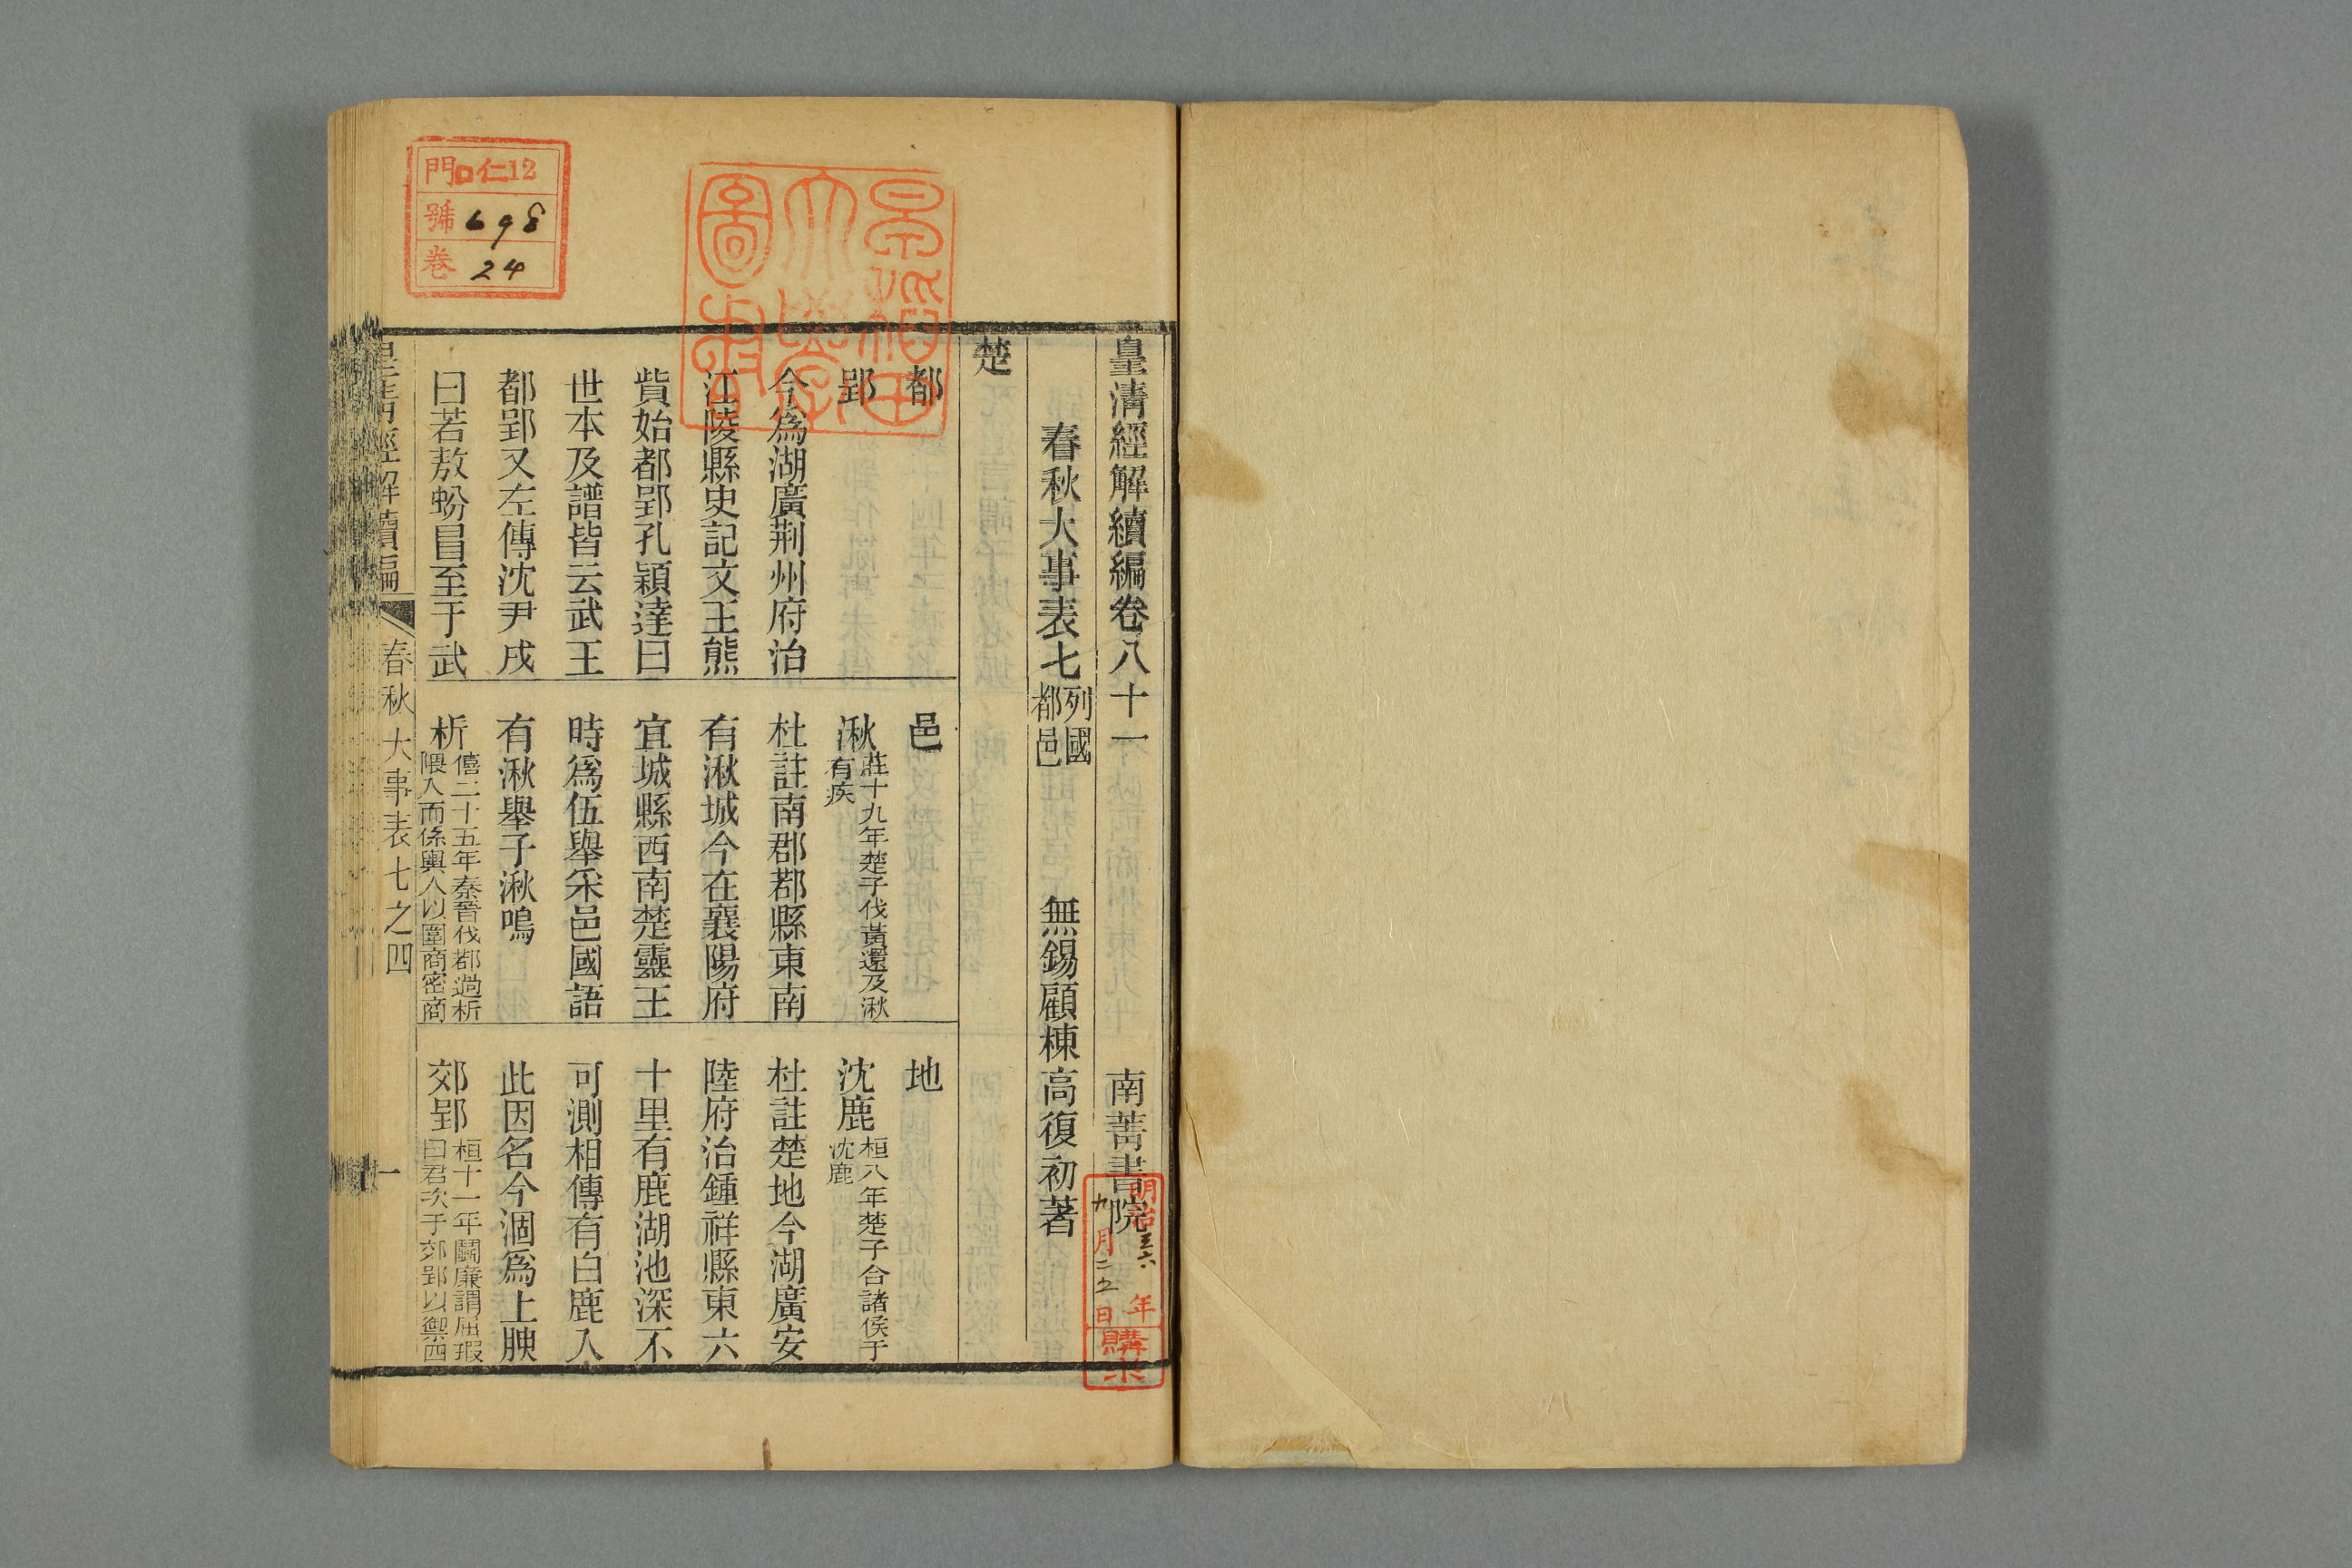 皇清經解續編卷八十一
南菁書院
春秋大事表七
列國
都邑
無錫顧棟高復初著
楚
都
郢
今爲湖廣荆州府治
江陵縣史記文王熊
貲始都郢孔穎達曰
世本及譜皆云武王
都郢又左傳沈尹戌
曰若敖蚡冒至于武
邑
湫
莊十九年楚子伐黃還及湫
有疾
杜註南郡鄀縣東南
有湫城今在襄陽府
宜城縣西南楚靈王
時爲伍舉采邑國語
有湫舉子湫鳴
析
僖二十五年秦晉伐鄀過析
隈入而係輿人以圍商密商
地
沈鹿
桓八年楚子合諸侯于
沈鹿
杜註楚地今湖廣安
陸府治鍾祥縣東六
十里有鹿湖池深不
可測相傳有白鹿入
此因名今涸爲上腴
郊郢
桓十一年鬭廉謂屈瑕
曰君次于郊郢以禦四
皇清經解續編
春秋大事表七之四
一
門 ロ仁12
號 698
卷 24
早稻田
大學
圖書
明治三六年
九月二五日
購求